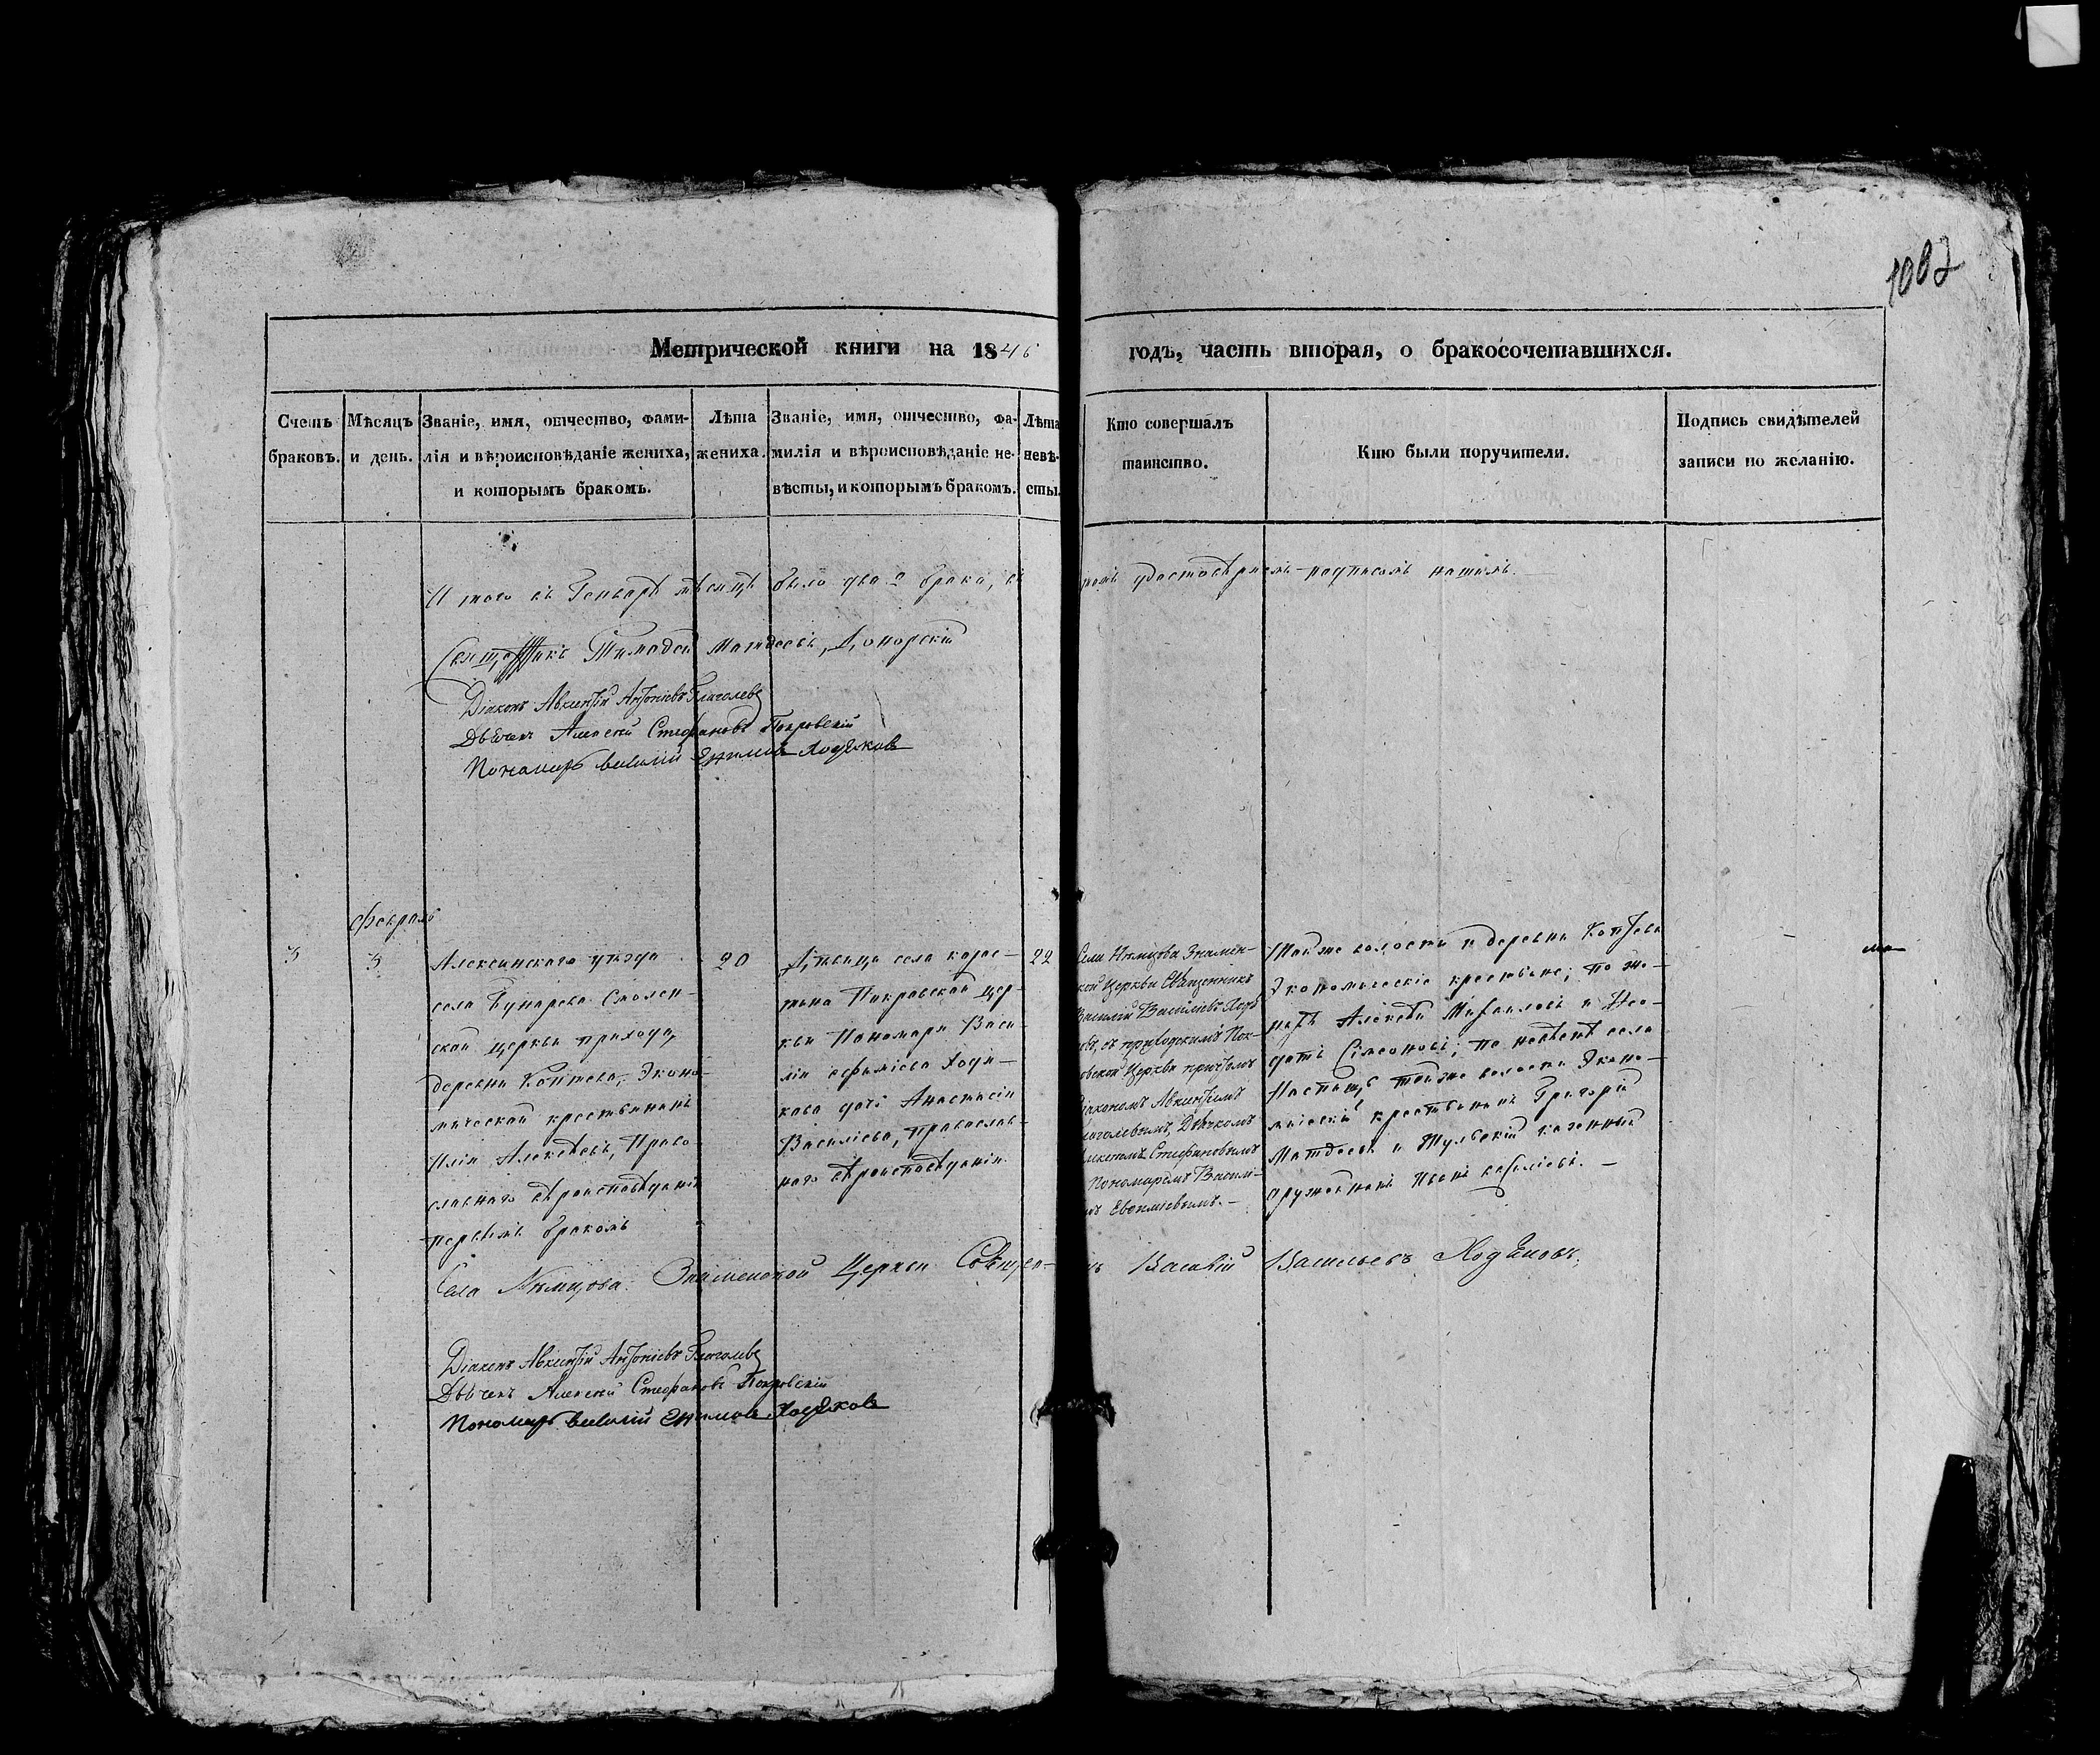 1002
Метрической книги на 1846 годъ, часть вторая, о бракосочетавшихся.
Счетъ браковъ.
Мѣсяцъ и день.
Званіе, имя, отчество, фами-
лія и вѣроисповѣданіе жениха,
и которымъ бракомъ.
Лѣта
жениха.
Званіе, имя, отчество, фа-
милія и вѣроисповѣданіе не-
вѣсты, и которымъ бракомъ.
Лѣта
невѣ-
сты.
Кто совершалъ
таинство.
Кто были поручители.
Подпись свидѣтелей
записи по желанію.
И того въ Генварѣ мѣсяцѣ было два 2 брака, въ
томъ удостовѣряемъ подписомъ нашимъ.
Священникъ Тимофей Матфеевъ Донорскій
Діаконъ Авксентій Антоніевъ Глаголевъ
Дьячекъ Алексей Стефановъ Покровскій
Пономарь Василий Ефимов Ходяков
Февраль
3
3
Алексинскаго уѣзда
села Бунарева Смолен-
ской церкви прихода,
деревни Коптева, Эконо-
мической крестьянинъ
Илія Алексѣевъ, Право-
славнаго вѣроисповѣданія
первымъ бракомъ
20
Дѣвица села
Покровской Цер-
кви Пономаря Васи-
лія Ефиміева Ходя-
кова дочь Анастасія
Васильева, Православ-
наго вѣроисповѣданія
22
Села Нѣмцова Знамен-
кой Церкви Священникъ
Василій Васильевъ Ходя
овъ, съ приходскимъ Пок-
овской Церкви причтомъ
іакономъ Авксентіемъ
лаголевымъ, Дьячкомъ
лексеемъ Стефановымъ
Пономаремъ Васили-
мъ Евфиміевымъ.-
Той же волости и деревни Коптева
Экономическіе крестьяне; по же-
нихѣ Алексѣй Михаиловъ и Фео-
дотъ Сімеоновъ; по невѣстѣ села
той же волости Эконо-
мическій крестьянинъ Григорій
Матфеевъ и Тульскій казенный
оружейникъ Иванъ Васильевъ. -
Села Нѣмцова Знаменской Церкви Священ-
къ Василій Васильевъ Ходяковъ.
Діаконъ Авксентій Антоніевъ Глаголевъ
Дьячекъ Алексей Стефановъ Покровскій
Пономарь Василий Ефимов Ходяков